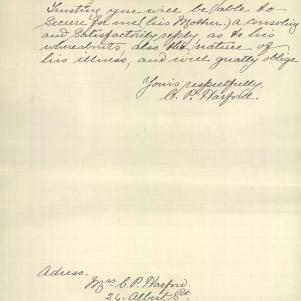 Trusting you will be able to
secure for me (his Mother,) a consoling
and satisfactority reply, as to his
whereabouts, also the nature of
his illness, and will greatly oblige
Yours respectfully,
C. P. Harford.
Adress.
Mrs C. P. Harford.
24 Albert St.